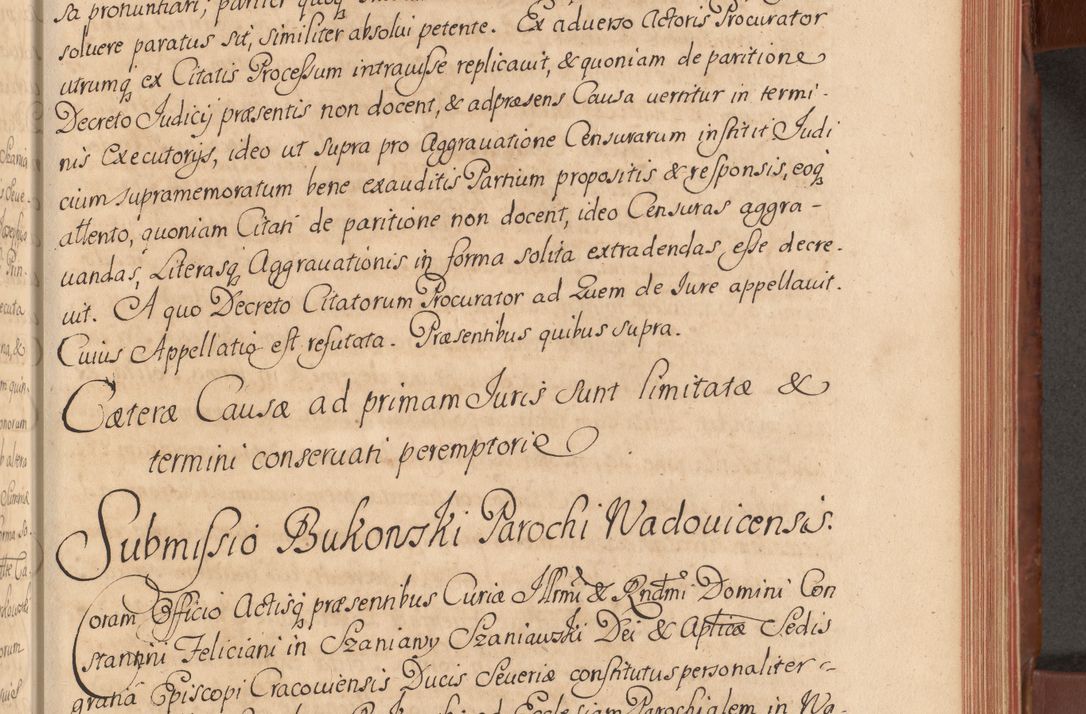 sa pronuntiari, pariter quoq
soluere paratus sit, similiter absolui petente. Ex aduerso Actoris Procurator
utrumq ex Citatis Processum intrauisse replicauit, & quoniam de paritione
Decreto Judicij præsentis non docent, & adpræsens Causa uertitur in termi-
nis Executorijs, ideo ut supra pro Aggrauatione Censurarum institit Judi
cium supramemoratum bene exauditis Partium propositis & responsis, eoq
attento, quoniam Citati de paritione non docent, ideo Censuras aggra-
uandas, Literasq Aggrauationis in forma solita extradendas esse decre-
uit. A quo Decreto Citatorum Procurator ad Quem de Jure appellauit.
Cuius Appellatio est refutata. Præsentibus quibus supra.
Cæteræ Causæ ad primam Juris sunt limitatæ &
termini conseruati peremptorie
Submissio Bukowski Parochi Wadouicensis.
Coram Officio Actisq præsentibus Curiæ Illrmi & Rndmi Domini Con
stantini Feliciani in Szaniawy Szaniawski Dei & Apticæ Sedis
gratia Episcopi Cracouiensis Ducis Seueriæ constitutus personaliter
ad Ecclesiam Parochialem in Wa-